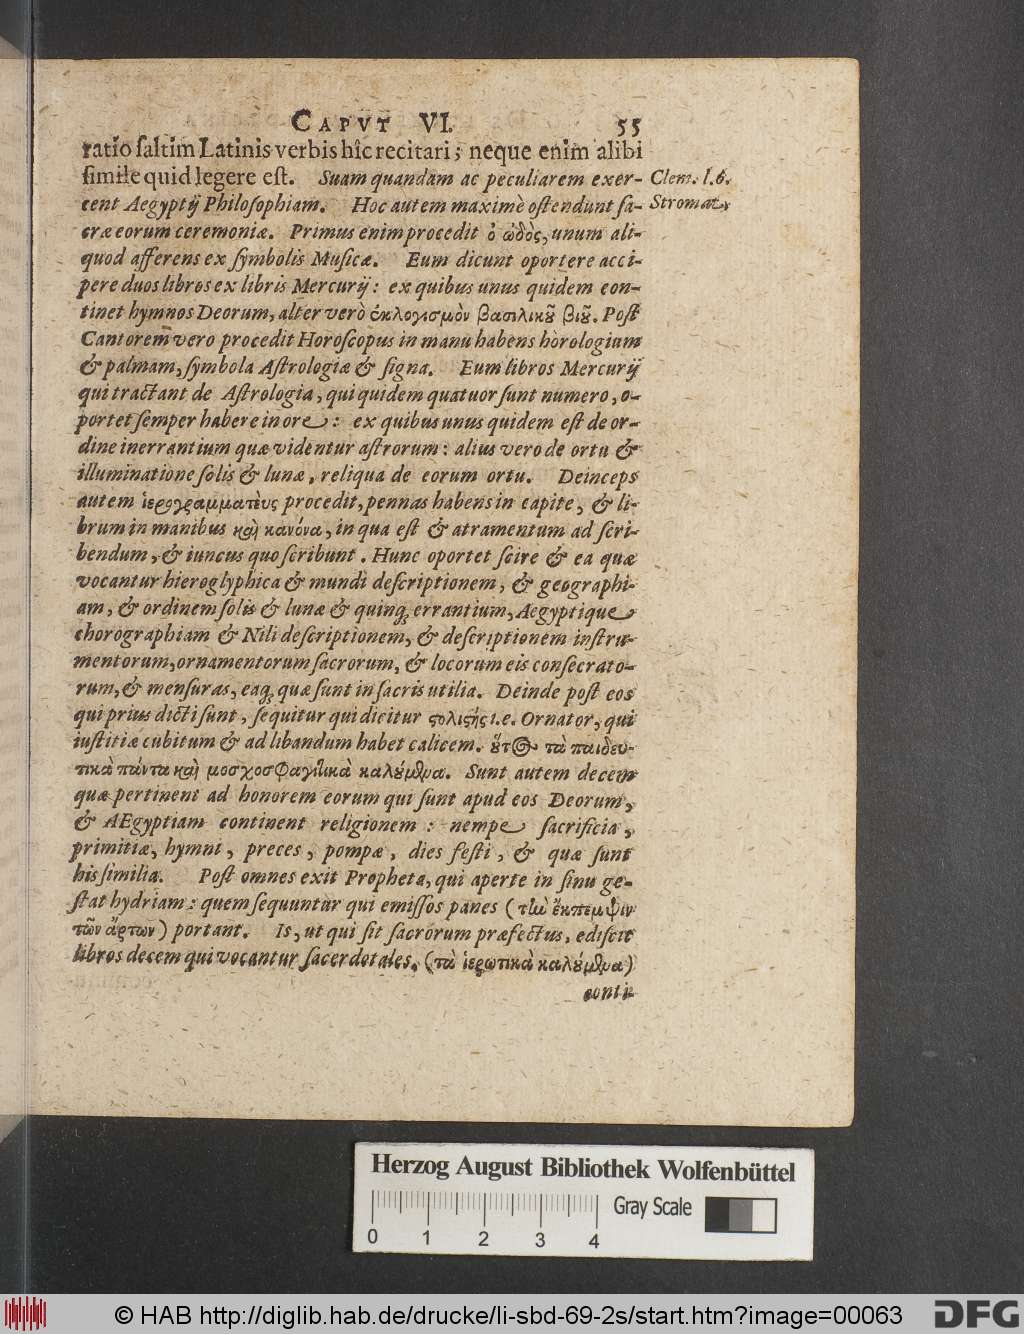 CAPVT VI. 55
ratio saltim Latinis verbis hîc recitari; neque enim alibi
simile quid legere est. Suam quandam ac peculiarem exer-
Clem. l.6.
cent Aegyptij Philosophiam. Hoc autem maximè ostendunt sa-
Stromat.
cræ eorum ceremoniæ. Primus enim procedit ὁ ὠδὸς, unum ali-
quod afferens ex symbolis Musicæ. Eum dicunt oportere acci-
pere duos libros ex libris Mercurij: ex quibus unus quidem con-
tinet hymnos Deorum, alter verò ἐκλογισμὸν βασιλικοῦ βίου. Post
Cantorem vero procedit Horoscopus in manu habens horologium
& palmam, symbola Astrologiæ & signa. Eum libros Mercurij
qui tractant de Astrologia, qui quidem quatuor sunt numero, o-
portet semper habere in ore: ex quibus unus quidem est de or-
dine inerrantium quæ videntur astrorum: alius vero de ortu &
illuminatione solis & lunæ, reliqua de eorum ortu. Deinceps
autem ἱερογραμματεὺς procedit, pennas habens in capite, & li-
brum in manibus καὶ κανόνα, in qua est & atramentum ad scri-
bendum, & iuncus quo scribunt. Hunc oportet scire & ea quæ
vocantur hieroglyphica & mundi descriptionem, & geographi-
am, & ordinem solis & lunæ & quinq; errantium, Aegyptique
chorographiam & Nili descriptionem, & descriptionem instru-
mentorum, ornamentorum sacrorum, & locorum eis consecrato-
rum, & mensuras, eaq; quæ sunt in sacris utilia. Deinde post eos
qui prius dicti sunt, sequitur qui dicitur ςολιςής i.e. Ornator, qui
iustitiæ cubitum & ad libandum habet calicem. οὗτος τὰ παιδευ-
τικὰ πάντα καὶ μοσχοσφαγιτικὰ καλούμενα. Sunt autem decem
quæ pertinent ad honorem eorum qui sunt apud eos Deorum,
& AEgyptiam continent religionem: nempe sacrificia,
primitiæ, hymni, preces, pompæ, dies festi, & quæ sunt
his similia. Post omnes exit Propheta, qui aperte in sinu ge-
stat hydriam: quem sequuntur qui emissos panes (τὴν ἔκπεμψιν
τῶν ἄρτων) portant. Is, ut qui sit sacrorum præfectus, ediscit
libros decem qui vocantur sacerdotales, (τὰ ἱερωτικὰ καλούμενα)
conti-
Herzog August Bibliothek Wolfenbüttel
Gray Scale
0 1 2 3 4
© HAB http://diglib.hab.de/drucke/li-sbd-69-2s/start.htm?image=00063
DFG